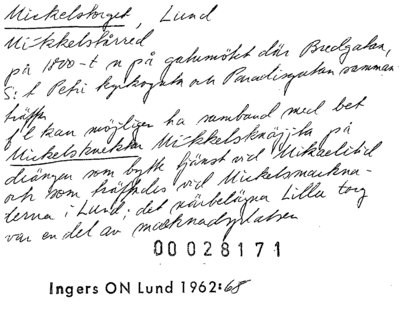 Mickelstorget, Lund
Mikkelstårred
på 1800-t n på gatumötet där Bredgatan,
S:t Petri kyrkogata och Paradisgatan samman
träffa
f l kan möjligen ha samband med bet
Mickelsknektar Mikkelsknäjjta på
drängar som bytte tjänst vid Mikaelitid
och som träffades vid Mickelsmarkna-
derna i Lund; det närbelägna Lilla torg
var en del av marknadsplatsen
00028171
Ingers ON Lund 1962:68